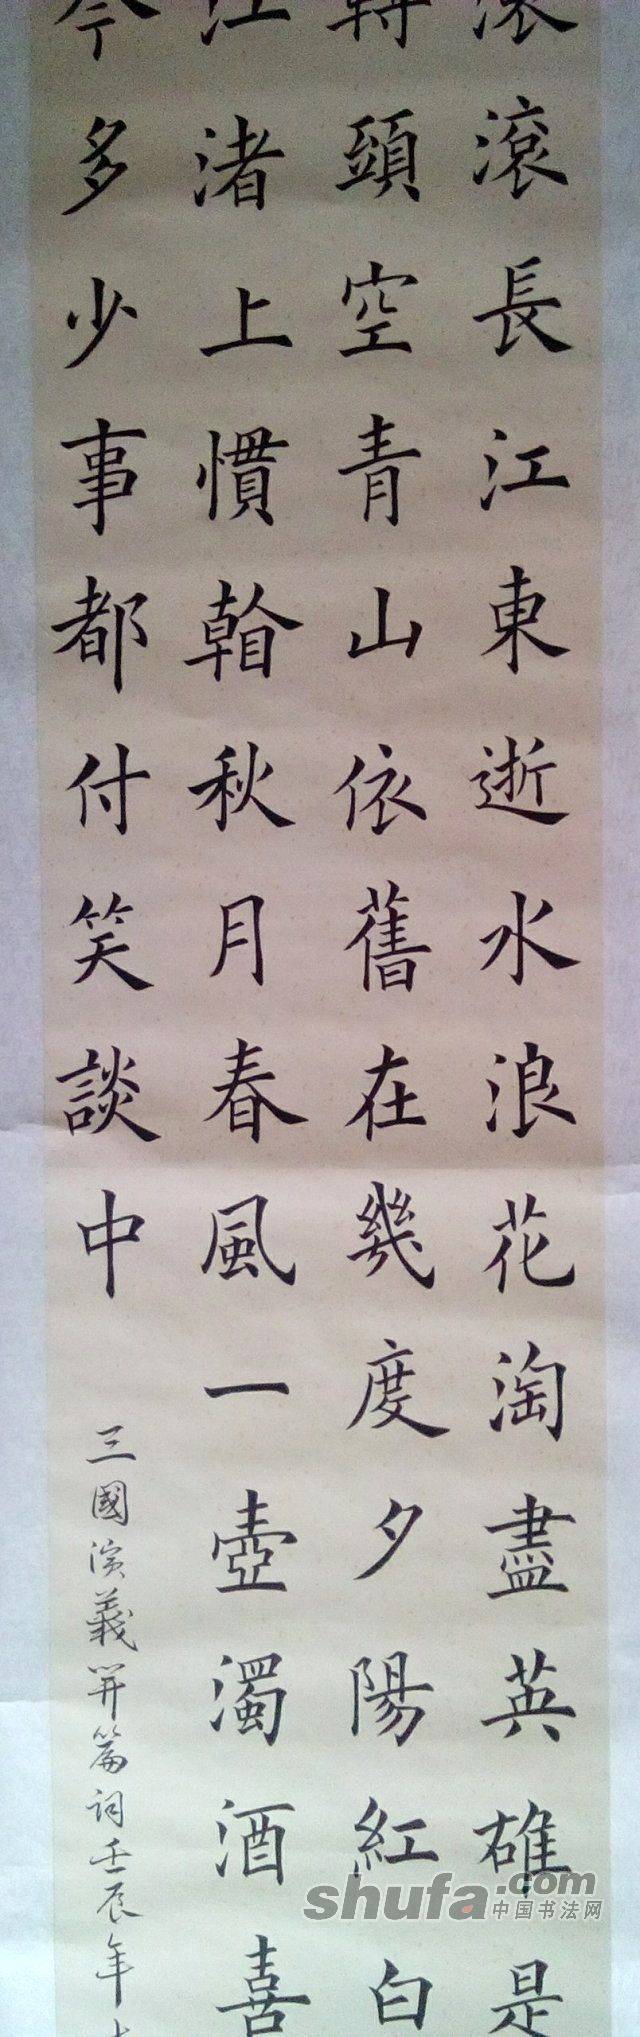 滾滾長江東逝水浪花淘盡英雄是
轉頭空青山依舊在幾度夕陽紅白
江渚上慣看秋月春風一壺濁酒喜
今多少事都付笑談中
三國演義開篇詞壬辰年
shufa.com
中国书法网